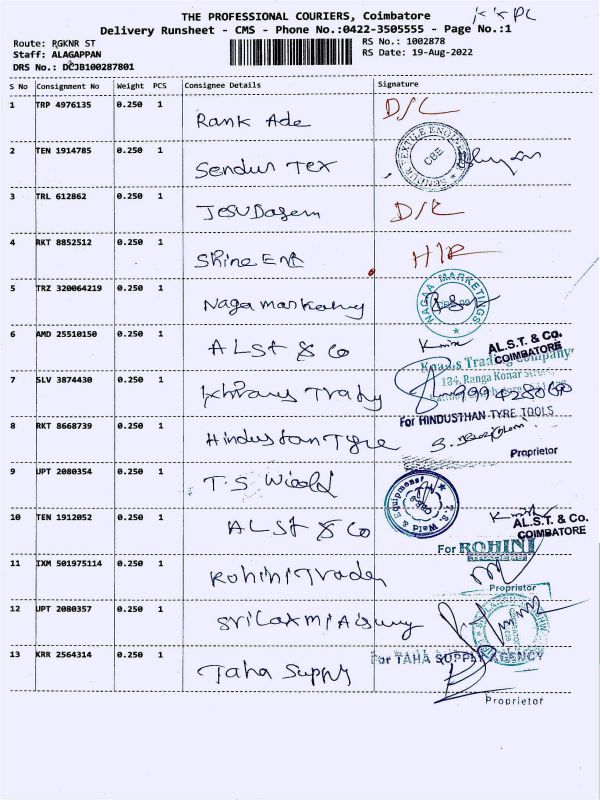 THE PROFESSIONAL COURIERS, Coimbatore
KKPL
Delivery Runsheet - CMS - Phone No.:0422-3505555 - Page No.:1
Route: RGKNR ST
RS No.: 1002878
Staff: ALAGAPPAN
RS Date: 19-Aug-2022
DRS No.: DCJB100287801
S No Consignment No Weight PCS Consignee Details Signature
1 TRP 4976135 0.250 1 Rank Ade D/L
2 TEN 1914785 0.250 1 Sendur Tex
SENDUR TEXTILE ENGINEER CBE
3 TRL 612862 0.250 1 Jesudasem D/L
4 RKT 8852512 0.250 1 Shine Ent
5 TRZ 320064219 0.250 1 Naga Marketing
NAGAA MARKETINGS
6 AMD 25510150 0.250 1 ALST & Co
AL.S.T. & Co.
COIMBATORE
7 SLV 3874430 0.250 1
Trading Company
184, Ranga Konar Street
8 RKT 8668739 0.250 1 Hindustan Tyre
For HINDUSTHAN TYRE TOOLS
Proprietor
9 UPT 2080354 0.250 1 T.S. Weld
T.S. Weld & Equipments
10 TEN 1912052 0.250 1 ALST & Co
AL.S.T. & Co.
COIMBATORE
11 IXM 501975114 0.250 1 Rohini Trader
For ROHINI TRADERS
Proprietor
12 UPT 2080357 0.250 1 Sri Laxmi Agency
13 KRR 2564314 0.250 1 Taha Supply
For TAHA SUPPLY AGENCY
Proprietor